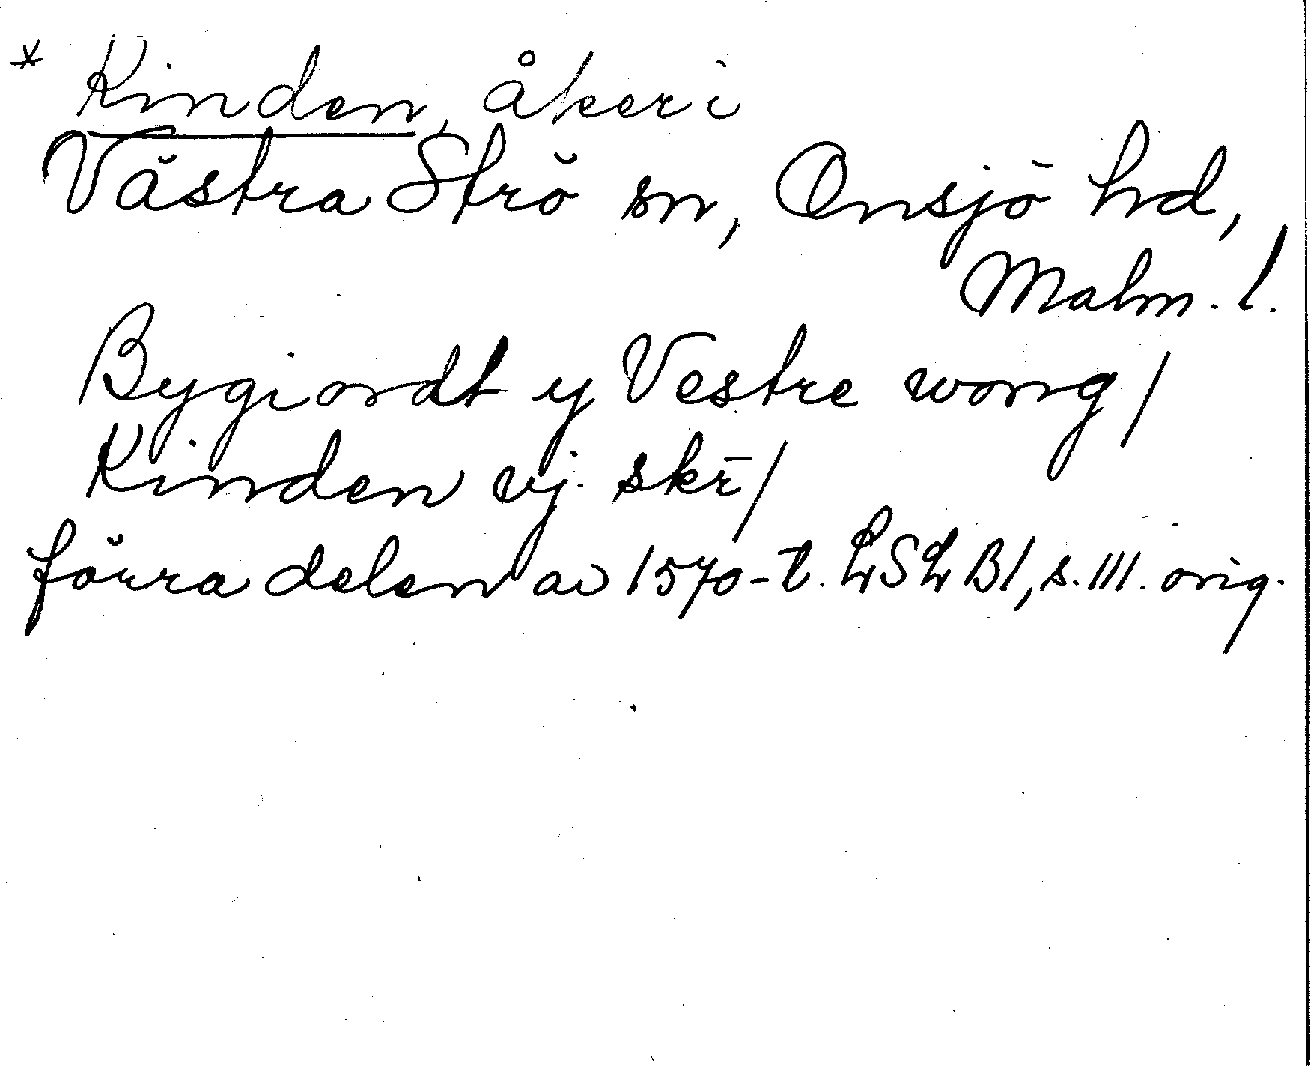 * Kinden, åker i
Västra Strö sn, Onsjö hd,
Malm. l.
Bygiordt y Vestre wong/
Kinden vj. skr̄/
förra delen av 1570-t. LSLB1, s. 111. orig.